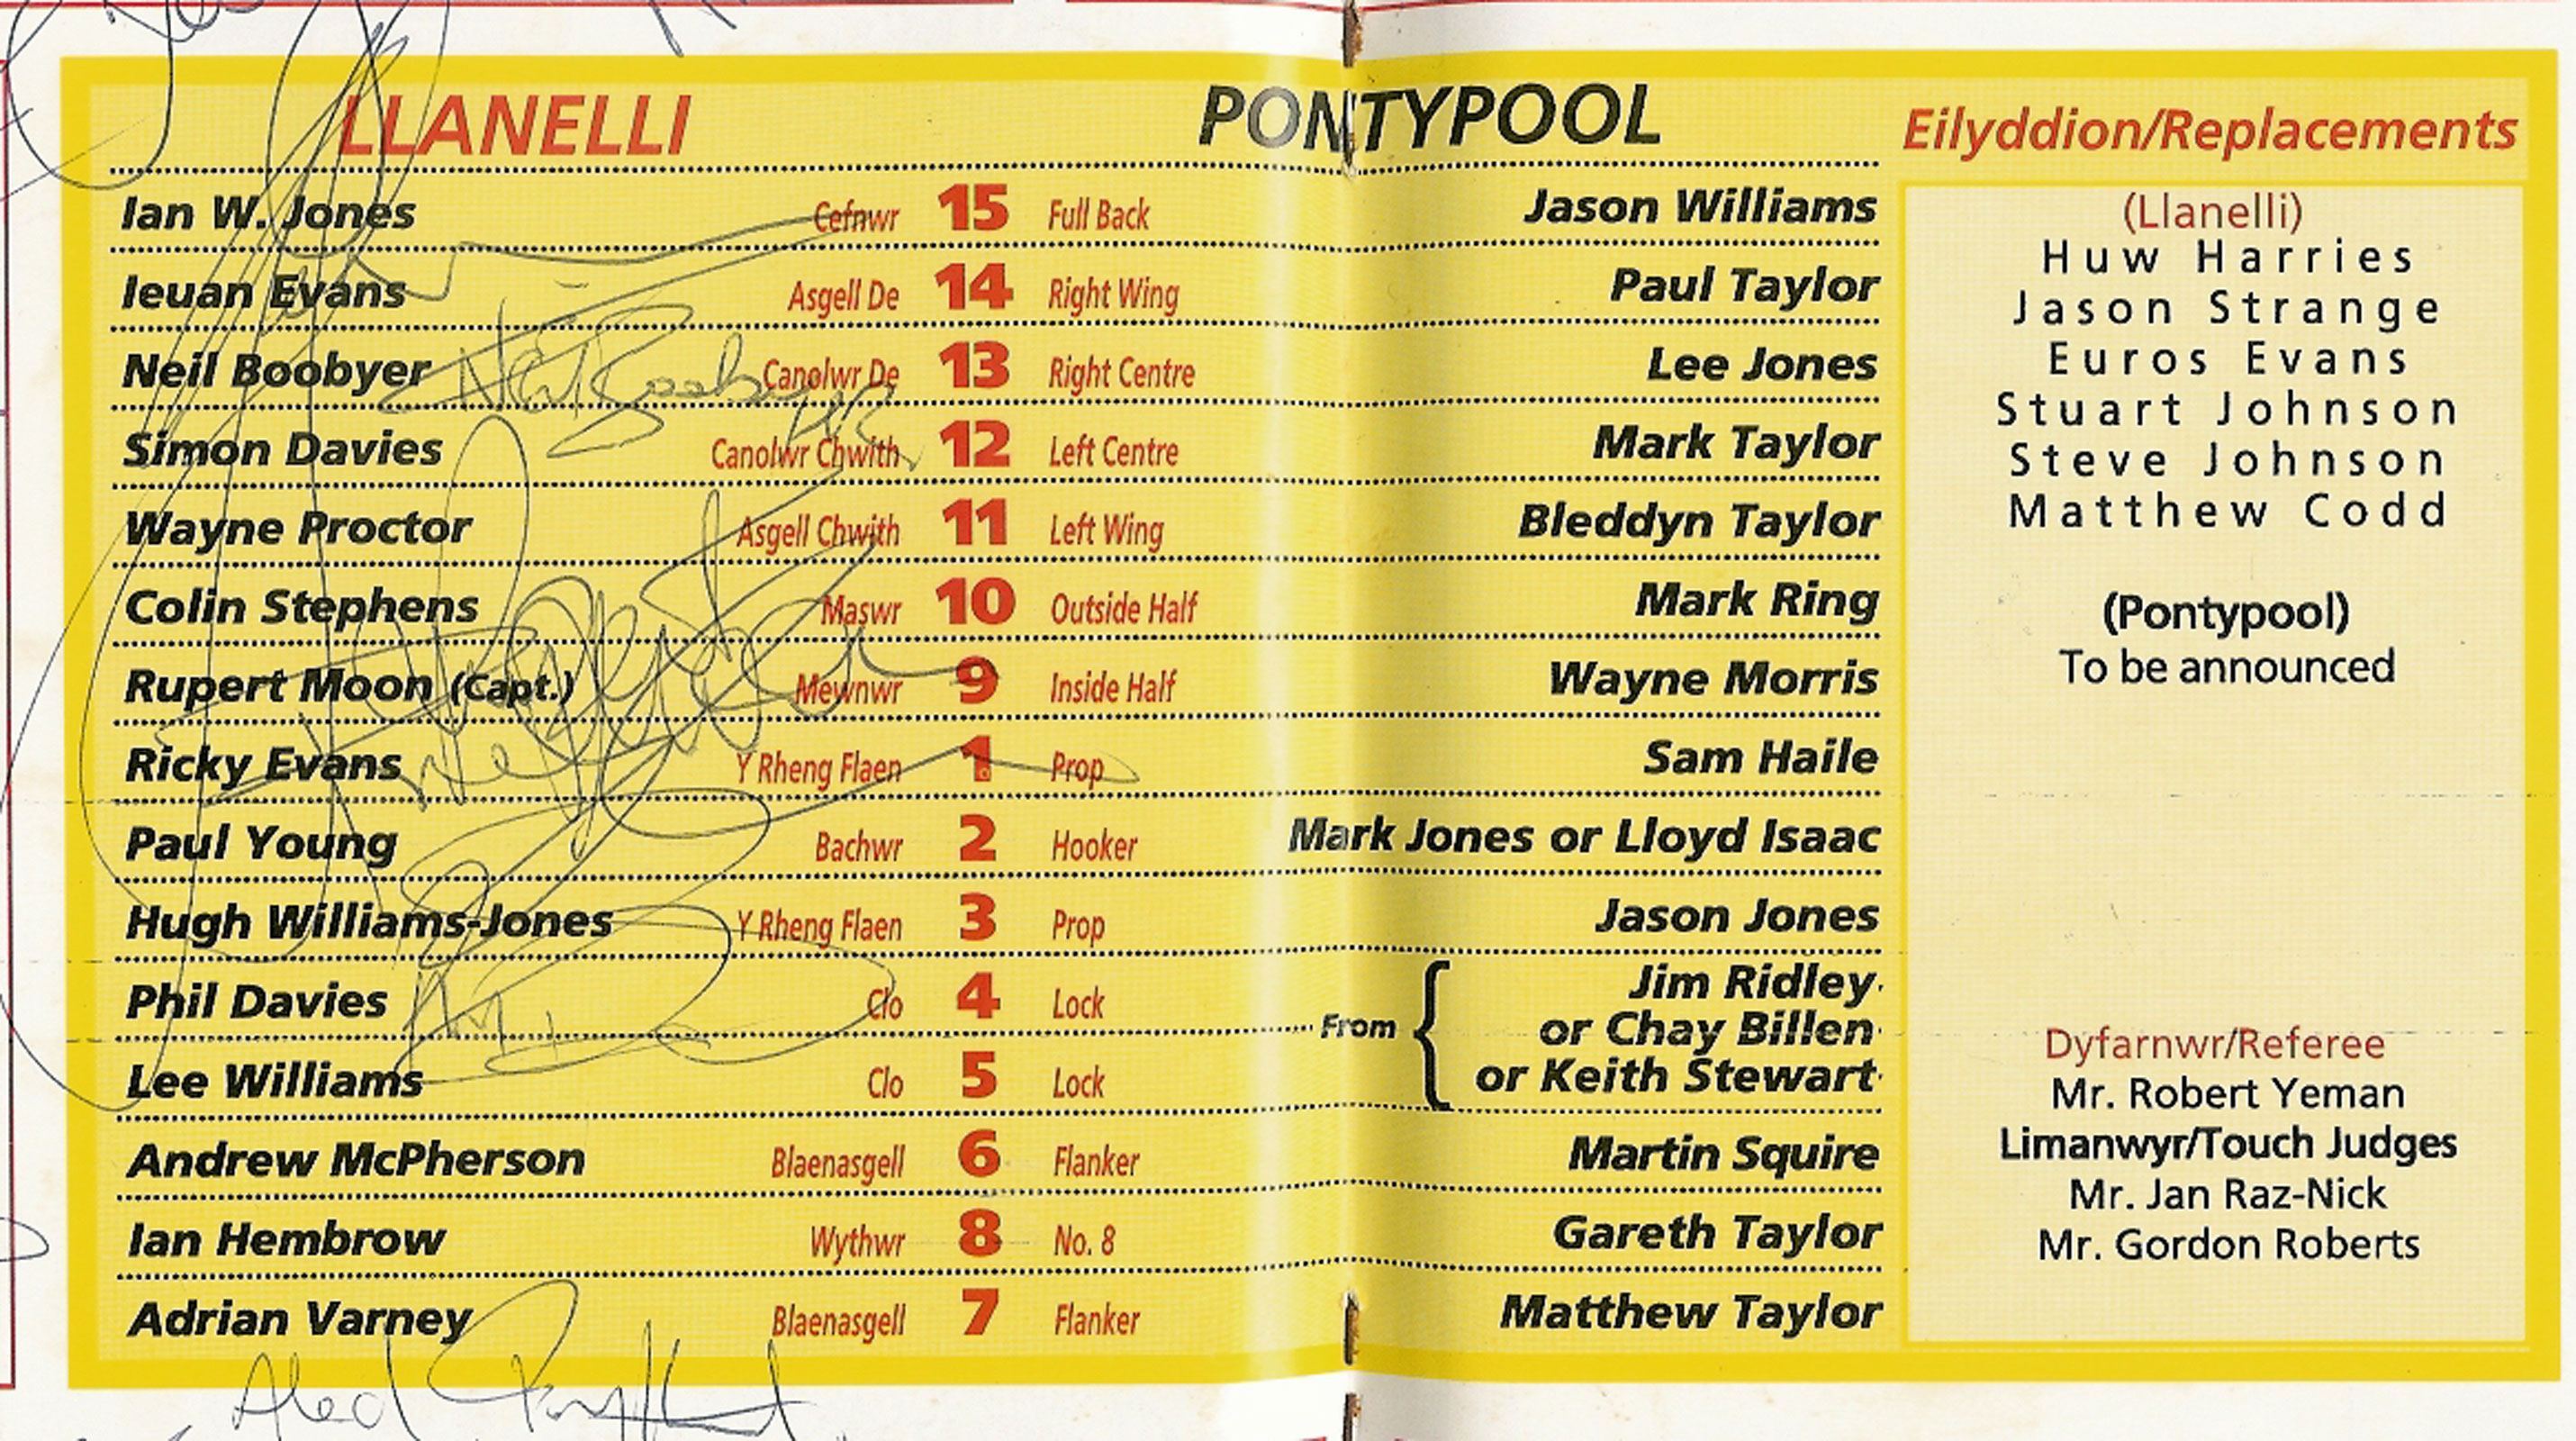 LLANELLI PONTYPOOL Eilyddion/Replacements
Ian W. Jones Cefnwr 15 Full Back Jason Williams
Ieuan Evans Asgell De 14 Right Wing Paul Taylor
Neil Boobyer Canolwr De 13 Right Centre Lee Jones
Simon Davies Canolwr Chwith 12 Left Centre Mark Taylor
Wayne Proctor Asgell Chwith 11 Left Wing Bleddyn Taylor
Colin Stephens Maswr 10 Outside Half Mark Ring
Rupert Moon (Capt.) Mewnwr 9 Inside Half Wayne Morris
Ricky Evans Y Rheng Flaen 1 Prop Sam Haile
Paul Young Bachwr 2 Hooker Mark Jones or Lloyd Isaac
Hugh Williams-Jones Y Rheng Flaen 3 Prop Jason Jones
Phil Davies Clo 4 Lock
Lee Williams Clo 5 Lock
From { Jim Ridley
or Chay Billen
or Keith Stewart
Andrew McPherson Blaenasgell 6 Flanker Martin Squire
Ian Hembrow Wythwr 8 No. 8 Gareth Taylor
Adrian Varney Blaenasgell 7 Flanker Matthew Taylor
(Llanelli)
Huw Harries
Jason Strange
Euros Evans
Stuart Johnson
Steve Johnson
Matthew Codd
(Pontypool)
To be announced
Dyfarnwr/Referee
Mr. Robert Yeman
Limanwyr/Touch Judges
Mr. Jan Raz-Nick
Mr. Gordon Roberts
Neil Boobyer